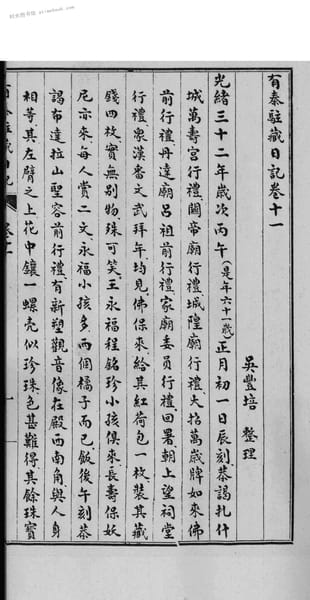 有泰駐藏日記卷十一
吳豐培 整理
光緒三十二年歲次丙午(是年六十一歲)正月初一日辰刻恭謁扎什
城萬壽宮行禮關帝廟行禮城隍廟行禮大招萬歲牌如來佛
前行禮丹達廟呂祖前行禮家廟委員行禮回署朝上望祠堂
行禮眾漢番文武拜年均見佛保來給其紅荷包一枚裝其藏
錢四枚實無別物殊可笑王永福程銘珍小孩俱來長壽保妖
尼亦來每人賞二文永福小孩多兩個橘子而已飯後午刻恭
謁布達拉山聖容前行禮有新塑觀音像在殿西南角與人身
相等其左臂之上花中鑲一螺壳似珍珠色甚難得其餘珠寶